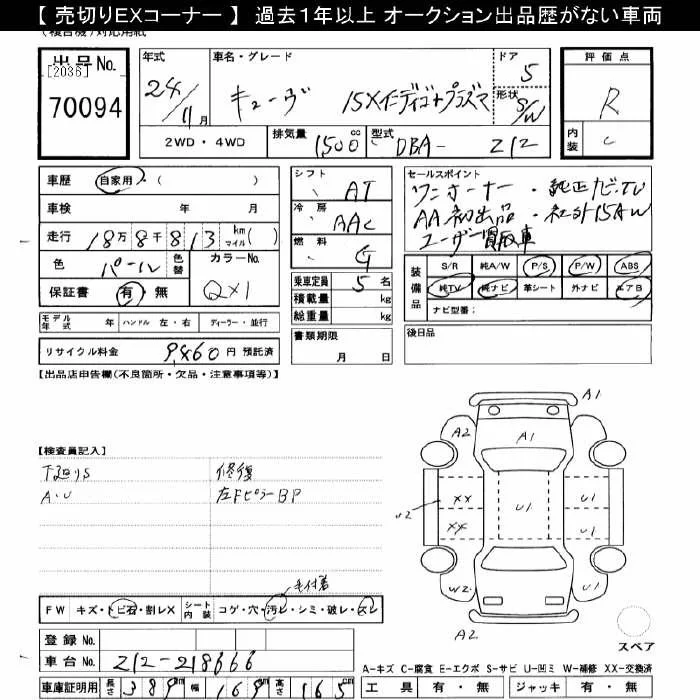 【 売切りEXコーナー 】 過去1年以上 オークション出品歴がない車両
出品No.
[2036]
70094
年式
24年 11月
車名・グレード
キューブ 15Xインディゴ+プラズマ
ドア 5
形状 S/W
2WD・4WD
排気量 1500 cc
型式 DBA- Z12
評価点
R
内装 C
車歴 自家用・( )
車検 年 月
走行 18万8千813 km マイル( )
色 パール 色替 カラーNo.
保証書 有・無 QX1
モデル年式 年 ハンドル 左・右 ディーラー・並行
リサイクル料金 9,860 円 預託済
シフト AT
冷房 AAC
燃料 G
乗車定員 5 名
積載量 kg
総重量 kg
書類期限
月 日
セールスポイント
ワンオーナー・純正ナビ・TV
AA初出品・社外15AW
ユーザー買取車
装備品
S/R 純A/W P/S P/W ABS
純TV 純ナビ 革シート 外ナビ エアB
ナビ型番:
後日品
【出品店申告欄(不良箇所・欠品・注意事項等)】
【検査員記入】
下廻りS 修復
A・U 左FピラーBP
毛付着
FW キズ・トビ石・割レX シート内装 コゲ・穴・汚レ・シミ・破レ・スレ
登録 No.
車台 No. Z12-218666
車庫証明用 長さ 389cm 幅 169cm 高さ 165cm
A1
A2 A1
XX U1 U1
U2
XX U1
W2 U1
A2
スペア
A-キズ C-腐食 E-エクボ S-サビ U-凹ミ W-補修 XX-交換済
工具 有・無 ジャッキ 有・無